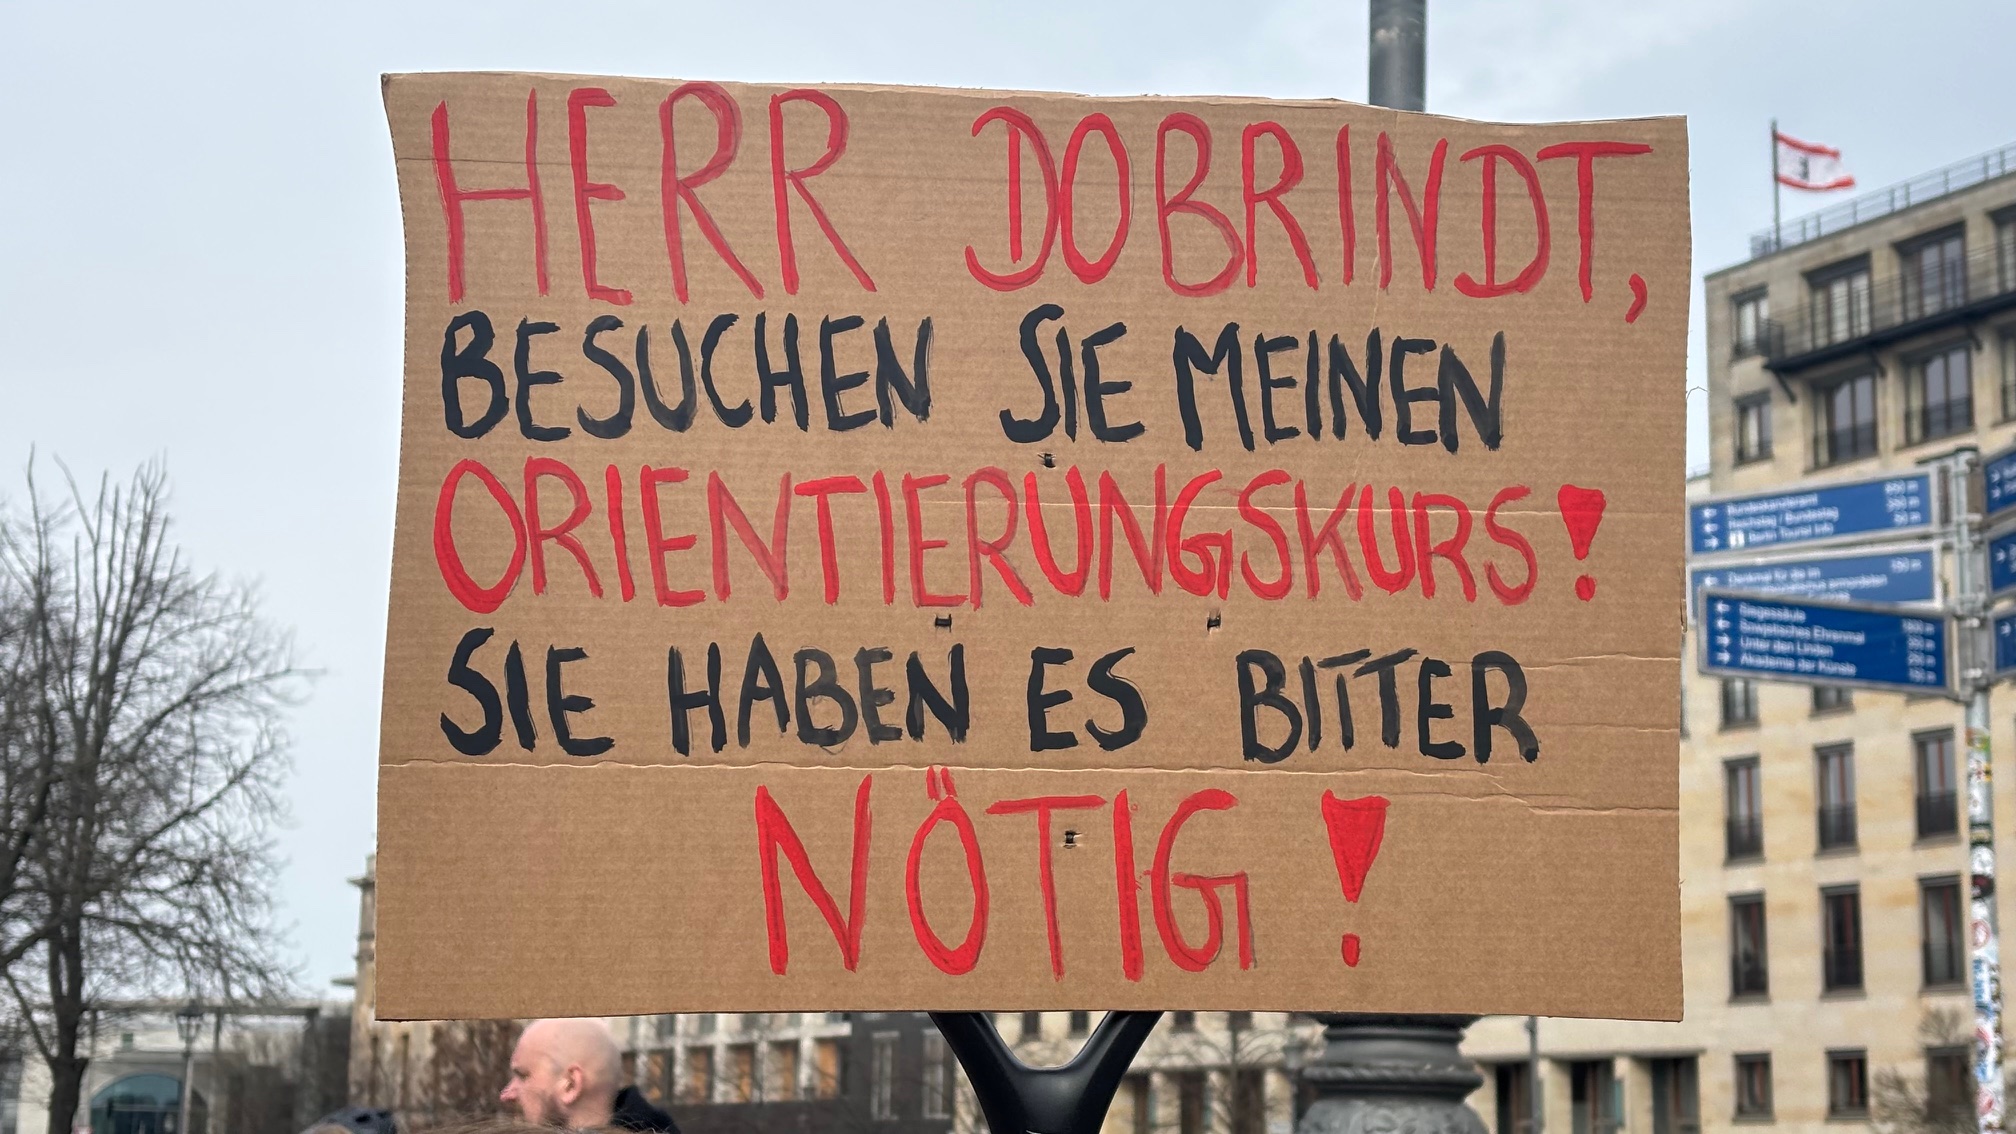 HERR DOBRINDT,
BESUCHEN SIE MEINEN
ORIENTIERUNGSKURS!
SIE HABEN ES BITTER
NÖTIG!
Bundeskanzleramt
Reichstag / Bundestag
Berlin Tourist Info
Denkmal für die im
Siegessäule
Sowjetisches Ehrenmal
Unter den Linden
Akademie der Künste